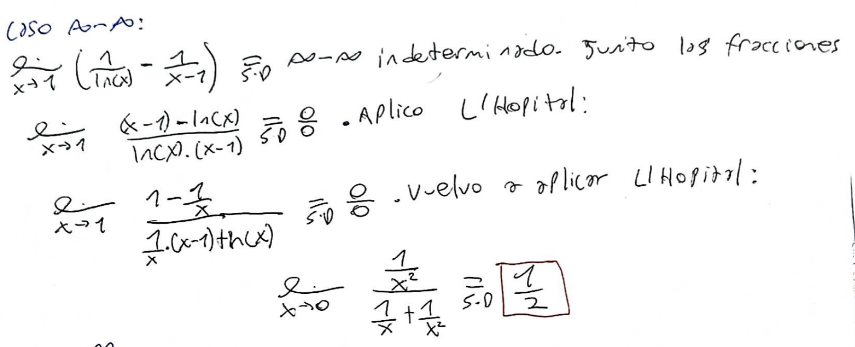 Caso ∞-∞:
lim x→1 (1/ln(x) - 1/(x-1)) = S.D ∞-∞ indeterminado. Junto las fracciones
lim x→1 ((x-1)-ln(x))/(ln(x).(x-1)) = S.D 0/0 . Aplico L'Hopital:
lim x→1 (1-1/x)/(1/x.(x-1)+ln(x)) = S.D 0/0 . Vuelvo a aplicar L'Hopital:
lim x→0 (1/x²)/(1/x+1/x²) = S.D 1/2